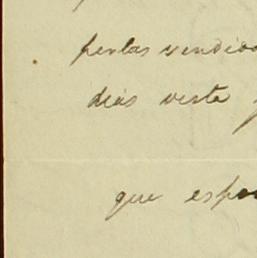 perlas vendido
dias vista
que espe